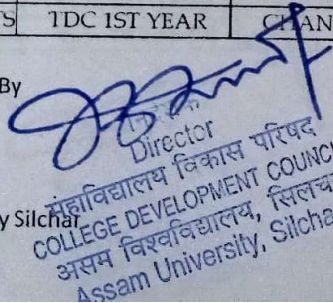 TDC 1ST YEAR
By
Director
महाविद्यालय विकास परिषद
COLLEGE DEVELOPMENT COUNC
y Silchar
असम विश्वविद्यालय, सिलच
Assam University, Silcha